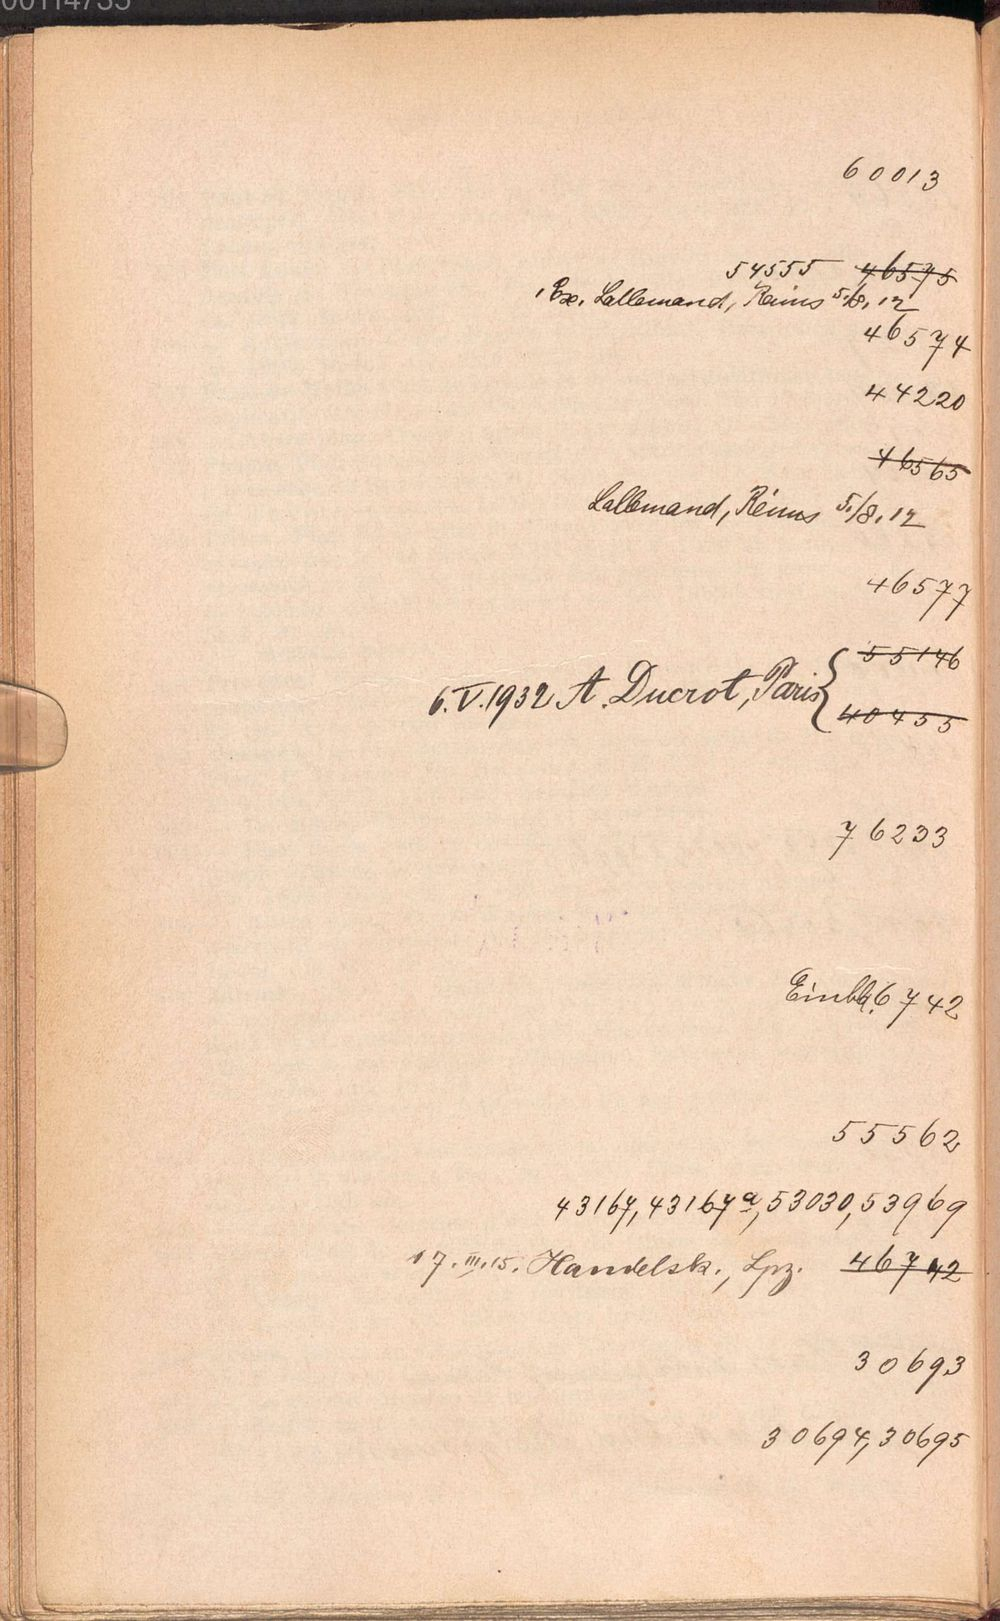 00114735
60013
54555 46575
1 Ex. Lallemand, Reims 5./8. 12
46574
44220
46565
Lallemand, Reims 5./8. 12
46577
55146
6.V.1932 A. Ducrot, Paris {
40455
76233
Einbl. 6742
55562
43167, 43167a, 53030, 53969
17. III. 15. Handelsk., Lpz. 46742
30693
30694, 30695